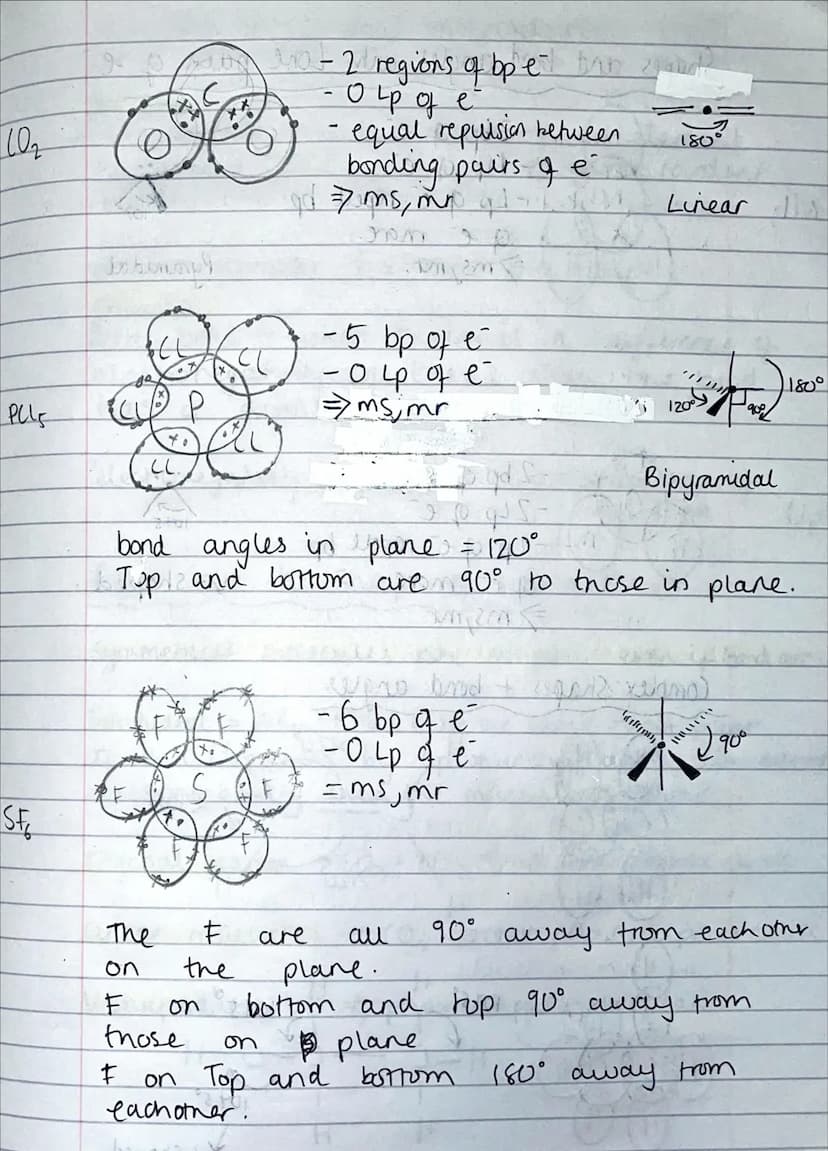 CO2
C
O O
- 2 regions of bp e-
- O Lp of e-
- equal repulsion between
bonding pairs of e-
⇒ ms, mr
180°
Linear
PCl5
CL CL
CL P
CL CL
- 5 bp of e-
- O Lp of e-
⇒ ms, mr
120° 90° 180°
Bipyramidal
bond angles in plane = 120°
Top and bottom are 90° to those in plane.
SF6
F F
F S F
F F
- 6 bp of e-
- O Lp of e-
= ms, mr
90°
The F are all 90° away from eachother
on the plane.
F on bottom and top 90° away from
those on plane
F on Top and bottom 180° away from
eachother.